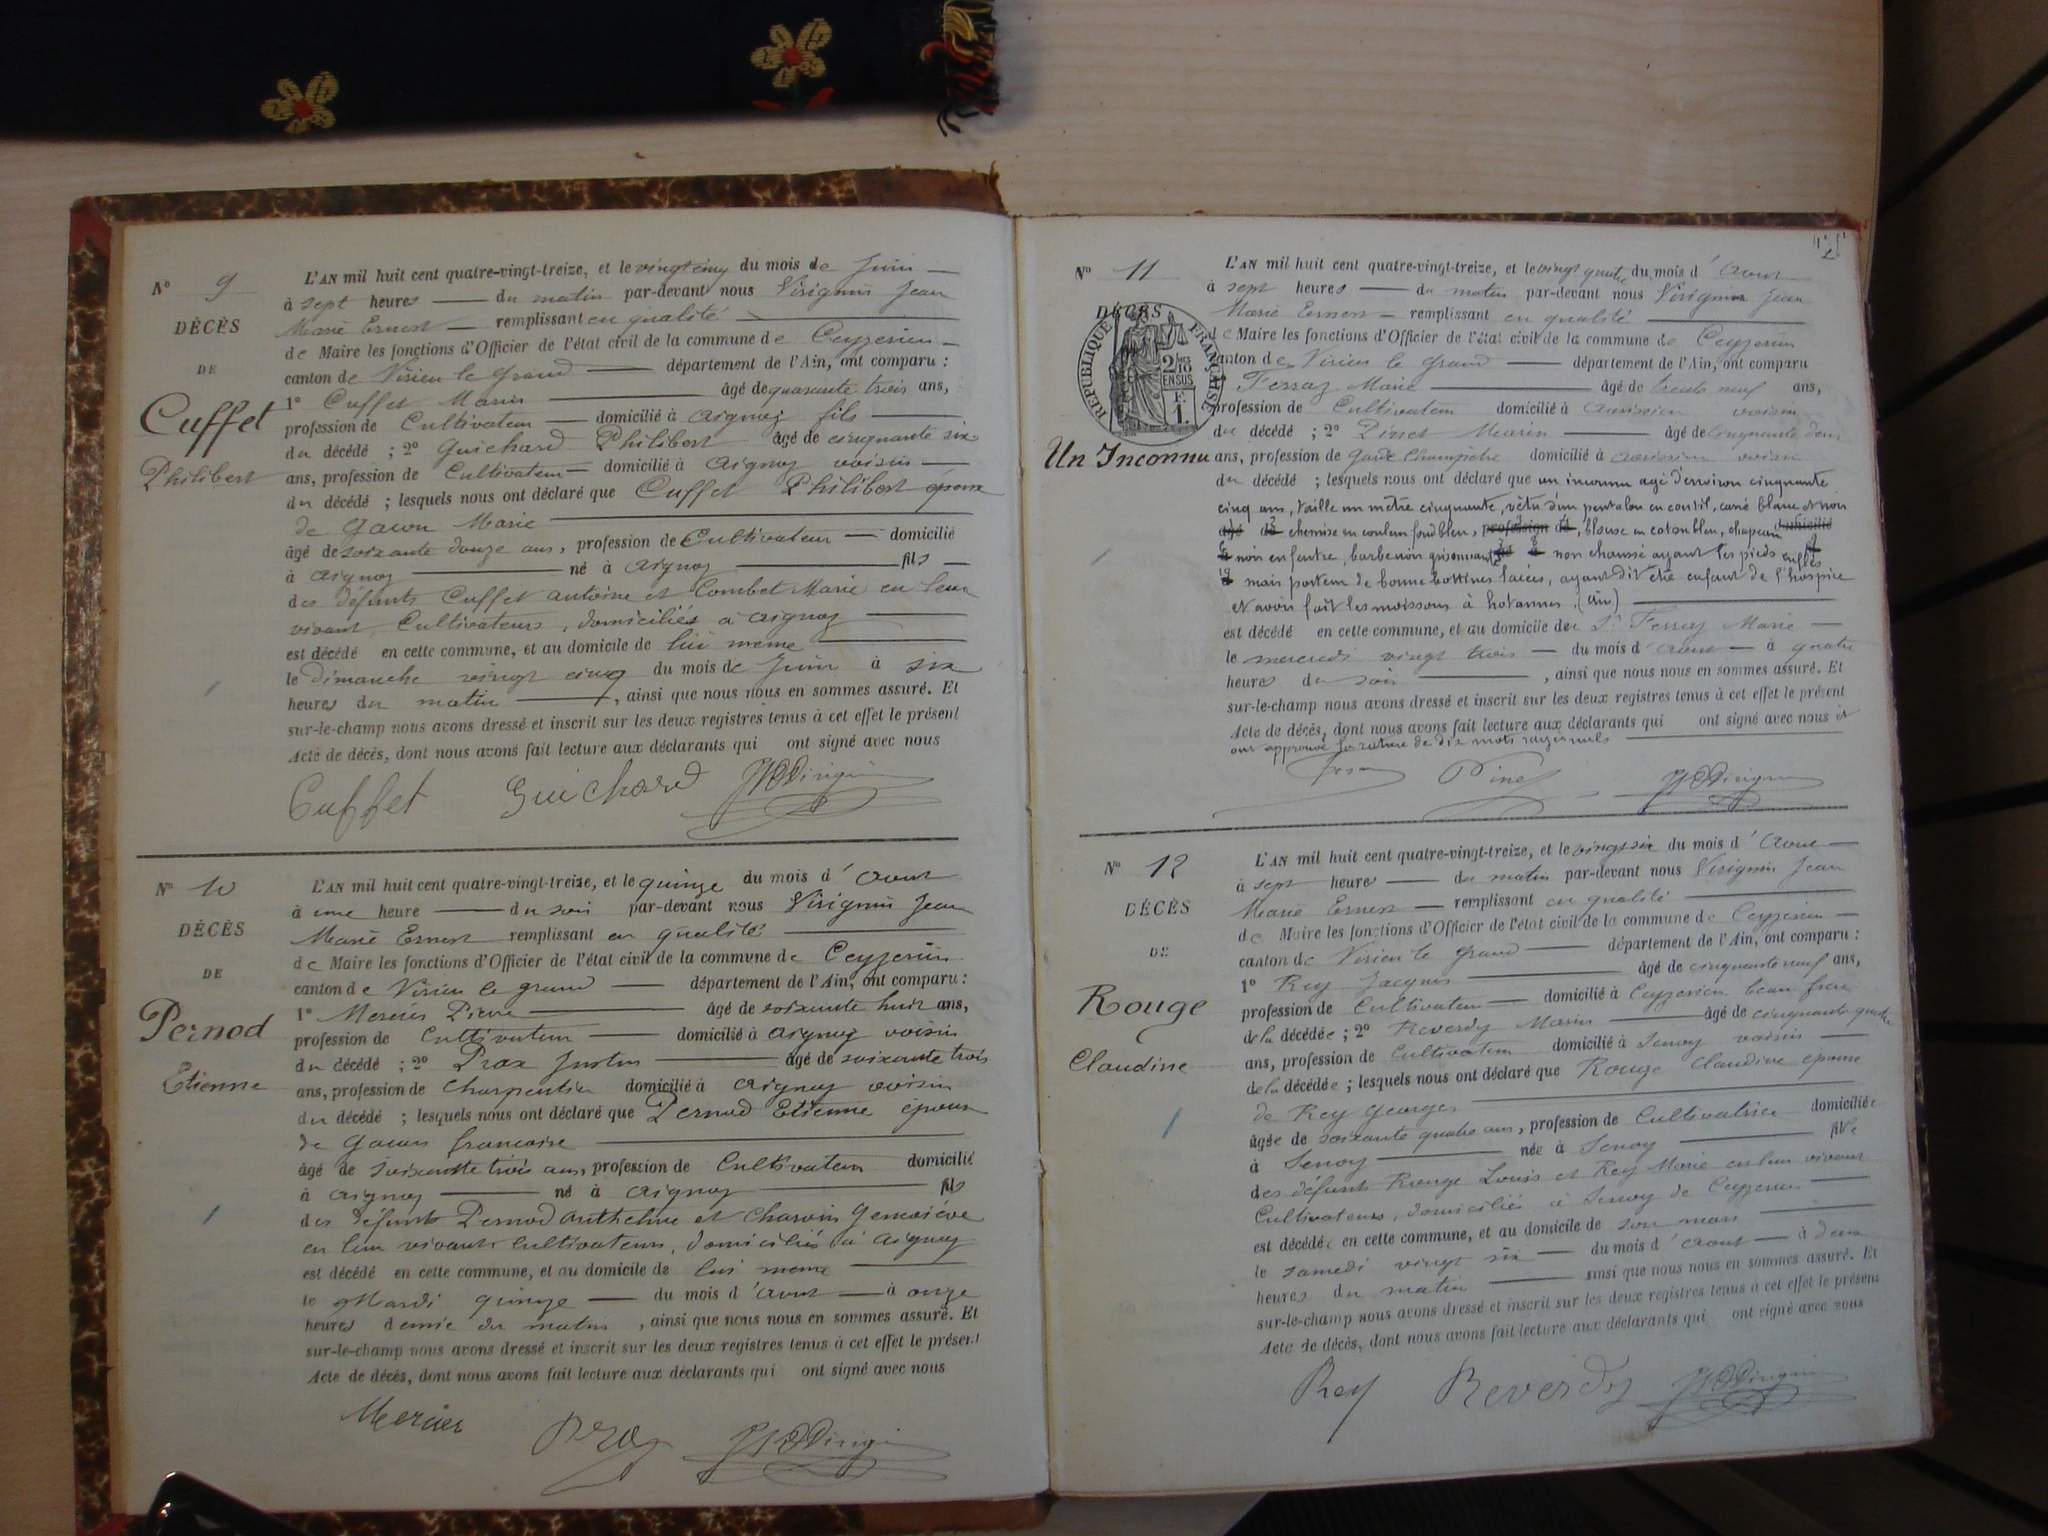 N° 9
DÉCÈS
DE
Cuffet
Philibert
L'AN mil huit cent quatre-vingt-treize, et le vingt cinq du mois de Juin
à sept heures du matin par-devant nous Virignin Jean
Marie Ernest remplissant en qualité
de Maire les fonctions d'Officier de l'état civil de la commune de Ceyzerieu
canton de Virieu le grand département de l'Ain, ont comparu :
1° Cuffet Marin âgé de quarante trois ans,
profession de Cultivateur domicilié à Aignoz fils
du décédé ; 2° Guichard Philibert âgé de cinquante six
ans, profession de Cultivateur domicilié à Aignoz voisin
du décédé ; lesquels nous ont déclaré que Cuffet Philibert époux
de Gacon Marie
âgé de soixante douze ans, profession de Cultivateur domicilié
à Aignoz né à Aignoz fils
des défunts Cuffet Antoine et Combet Marie en leur
vivant Cultivateurs, domiciliés à Aignoz
est décédé en cette commune, et au domicile de lui même
le dimanche vingt cinq du mois de Juin à six
heures du matin, ainsi que nous nous en sommes assuré. Et
sur-le-champ nous avons dressé et inscrit sur les deux registres tenus à cet effet le présent
Acte de décès, dont nous avons fait lecture aux déclarants qui ont signé avec nous
Cuffet Guichard Virignin
N° 10
DÉCÈS
DE
Pernod
Etienne
L'AN mil huit cent quatre-vingt-treize, et le quinze du mois d'Aout
à une heure du soir par-devant nous Virignin Jean
Marie Ernest remplissant en qualité
de Maire les fonctions d'Officier de l'état civil de la commune de Ceyzerieu
canton de Virieu le grand département de l'Ain, ont comparu :
1° Mercier Pierre âgé de soixante huit ans,
profession de Cultivateur domicilié à Aignoz voisin
du décédé ; 2° Prax Justin âgé de soixante trois
ans, profession de Charpentier domicilié à Aignoz voisin
du décédé ; lesquels nous ont déclaré que Pernod Etienne époux
de Gacon francoise
âgé de soixante trois ans, profession de Cultivateur domicilié
à Aignoz né à Aignoz fils
des défunts Pernod Anthelme et Charvin Geneviève
en leur vivants Cultivateurs, domiciliés à Aignoz
est décédé en cette commune, et au domicile de lui meme
le Mardi quinze du mois d'Aout à onze
heures demie du matin, ainsi que nous nous en sommes assuré. Et
sur-le-champ nous avons dressé et inscrit sur les deux registres tenus à cet effet le présent
Acte de décès, dont nous avons fait lecture aux déclarants qui ont signé avec nous
Mercier Prax Virignin
N° 11
DÉCÈS
RÉPUBLIQUE FRANÇAISE
2/10 EN SUS
F. 1.
Un Inconnu
L'AN mil huit cent quatre-vingt-treize, et le vingt quatre du mois d'Aout
à sept heures du matin par-devant nous Virignin Jean
Marie Ernest remplissant en qualité
de Maire les fonctions d'Officier de l'état civil de la commune de Ceyzerieu
canton de Virieu le grand département de l'Ain, ont comparu
Ferraz Marie âgé de trente neuf ans,
profession de Cultivateur domicilié à Avrissieu voisin
du décédé ; 2° Pinet Marin âgé de cinquante deux
ans, profession de Garde Champetre domicilié à Avrissieu voisin
du décédé ; lesquels nous ont déclaré que un inconnu agé d'environ cinquante
cinq ans, taille un mètre cinquante, vêtu d'un pantalon en coutil, carré blanc et noir
chemise en couleur fond bleu, blouse en coton bleu, chapeau
noir en feutre, barbe noir grisonnant non chaussé ayant les pieds enflés
mais porteur de bonne bottines lacées, ayant dit être enfant de l'hospice
et avoir fait les moissons à hotonnes, (ain)
est décédé en cette commune, et au domicile du Sr Ferraz Marie
le mercredi vingt trois du mois d'Aout à quatre
heures du soir, ainsi que nous nous en sommes assuré. Et
sur-le-champ nous avons dressé et inscrit sur les deux registres tenus à cet effet le présent
Acte de décès, dont nous avons fait lecture aux déclarants qui ont signé avec nous et
ont approuvé la rature de dix mots rayés nuls
Pinet Virignin
N° 12
DÉCÈS
DE
Rouge
Claudine
L'AN mil huit cent quatre-vingt-treize, et le vingt six du mois d'Aout
à sept heures du matin par-devant nous Virignin Jean
Marie Ernest remplissant en qualité
de Maire les fonctions d'Officier de l'état civil de la commune de Ceyzerieu
canton de Virieu le grand département de l'Ain, ont comparu :
1° Rey Jacques âgé de cinquante neuf ans,
profession de Cultivateur domicilié à Ceyzerieu beau frere
de la décédée ; 2° Reverdy Marin âgé de cinquante quatre
ans, profession de Cultivateur domicilié à Senoy voisin
de la décédée ; lesquels nous ont déclaré que Rouge Claudine épouse
de Rey Georges
âgée de soixante quatre ans, profession de Cultivatrice domiciliée
à Senoy née à Senoy fille
des défunts Rouge Louis et Rey Marie en leur vivant
Cultivateurs, domiciliés à Senoy de Ceyzerieu
est décédée en cette commune, et au domicile de son mari
le samedi vingt six du mois d'Aout à deux
heures du matin ainsi que nous nous en sommes assuré. Et
sur-le-champ nous avons dressé et inscrit sur les deux registres tenus à cet effet le présent
Acte de décès, dont nous avons fait lecture aux déclarants qui ont signé avec nous
Rey Reverdy Virignin